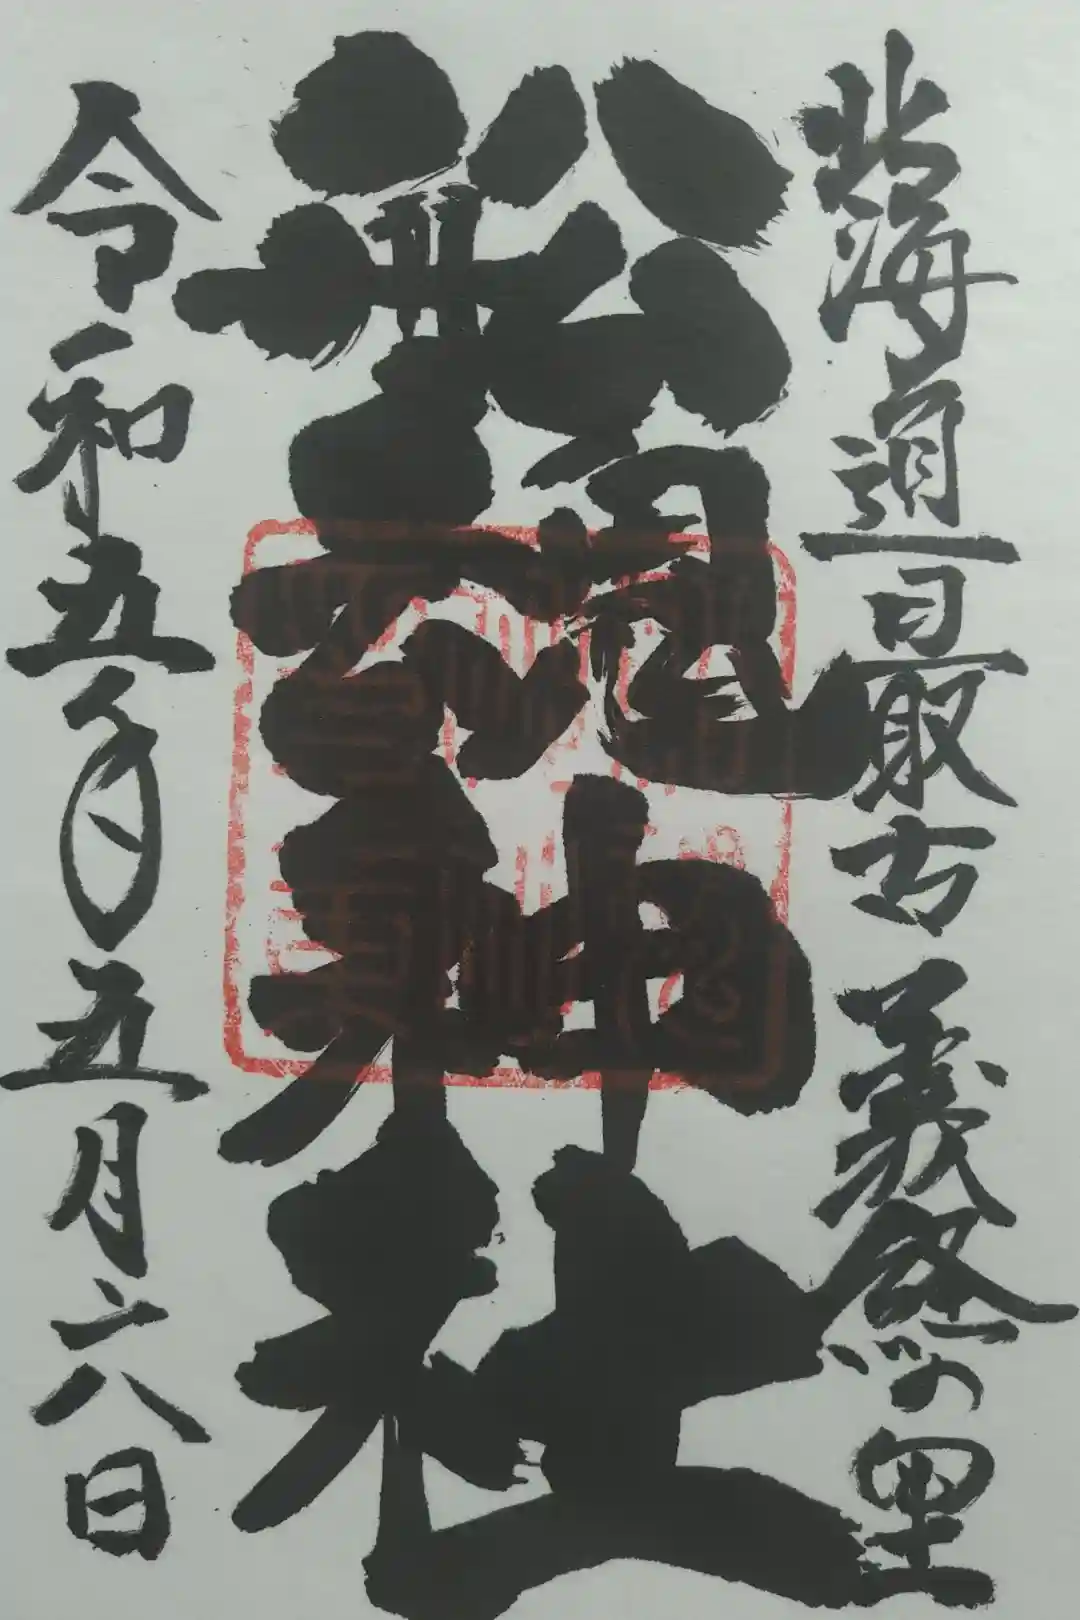 北海道最古 義経の里
船魂神社
令和五年五月六日